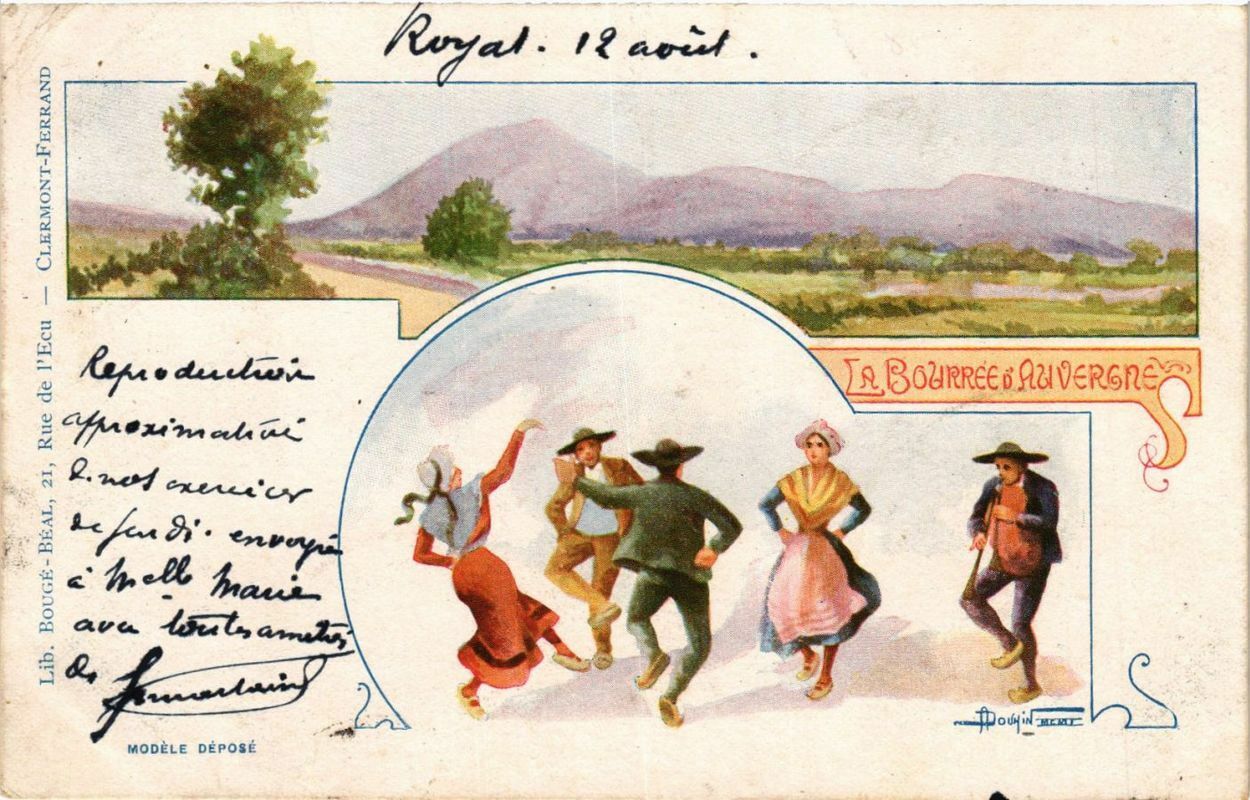 Royat. 12 août.
LA BOURRÉE D'AUVERGNE
Lib. BOUGÉ-BÉAL, 21, Rue de l'Ecu — CLERMONT-FERRAND
Reproduction
approximative
de nos exercices
de jeudi. envoyée
à Melle Marie
avec toutes amitiés
de
MODÈLE DÉPOSÉ